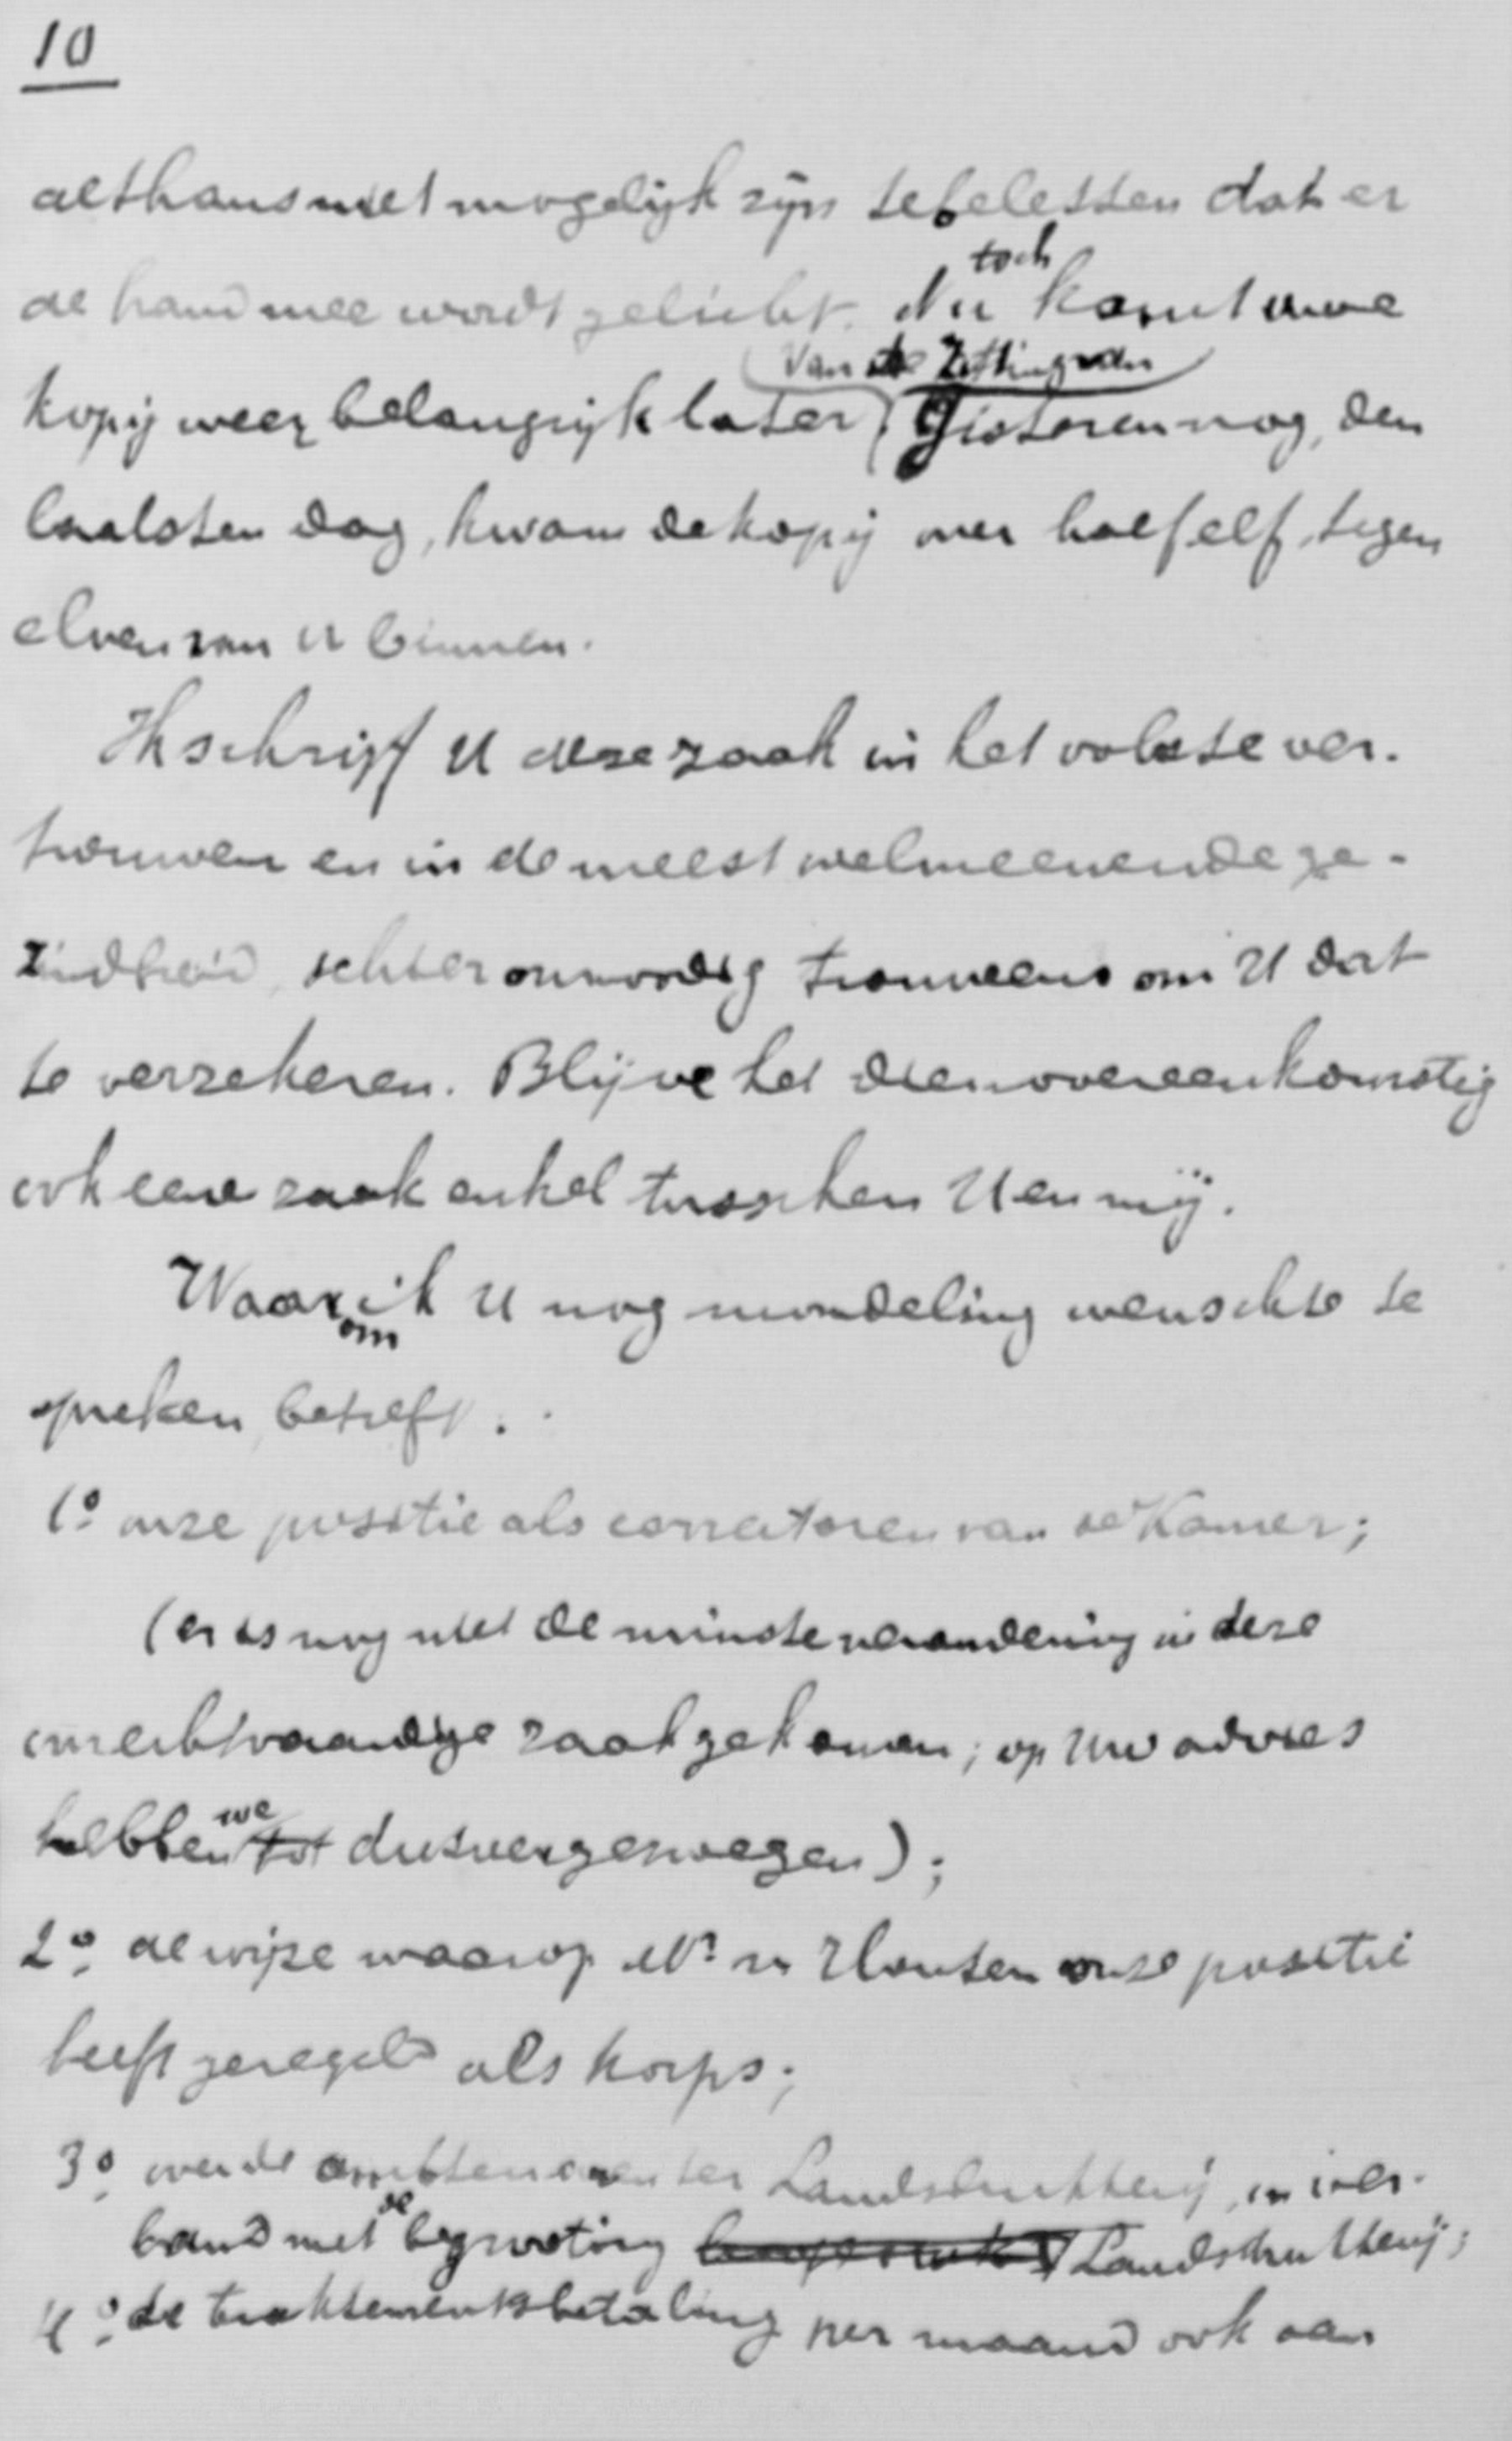 10
althans niet mogelijk zijn te beletten dat er
de hand mee wordt gelicht. Nu toch komt uwe
kopij weer belangrijk later; van de Zitting van Gisteren nog, den
laatsten dag, kwam de kopij over half elf, tegen
elven van U binnen.
Ik schrijf U deze zaak in het volste ver-
trouwen en in de meest welmeenende ge-
zindheid, echter onnoodig trouwens om U dat
te verzekeren. Blijve het dienovereenkomstig
ook eene zaak enkel tusschen U en mij.
Waarom ik U nog mondeling wenschte te
spreken, betreft.
1o. onze positie als correctoren van de Kamer;
(er is nog niet de minste verandering in deze
merkwaardige zaak gekomen; op Uw advies
hebben we tot dusver gezwegen);
2o. de wijze waarop Mr. v Houten onze positie
heeft geregeld als korps;
3o. over de ambtenaren ter Landsdrukkerij, in ver-
band met de begrooting Landsdrukkerij;
4o. de traktementsbetaling per maand ook aan